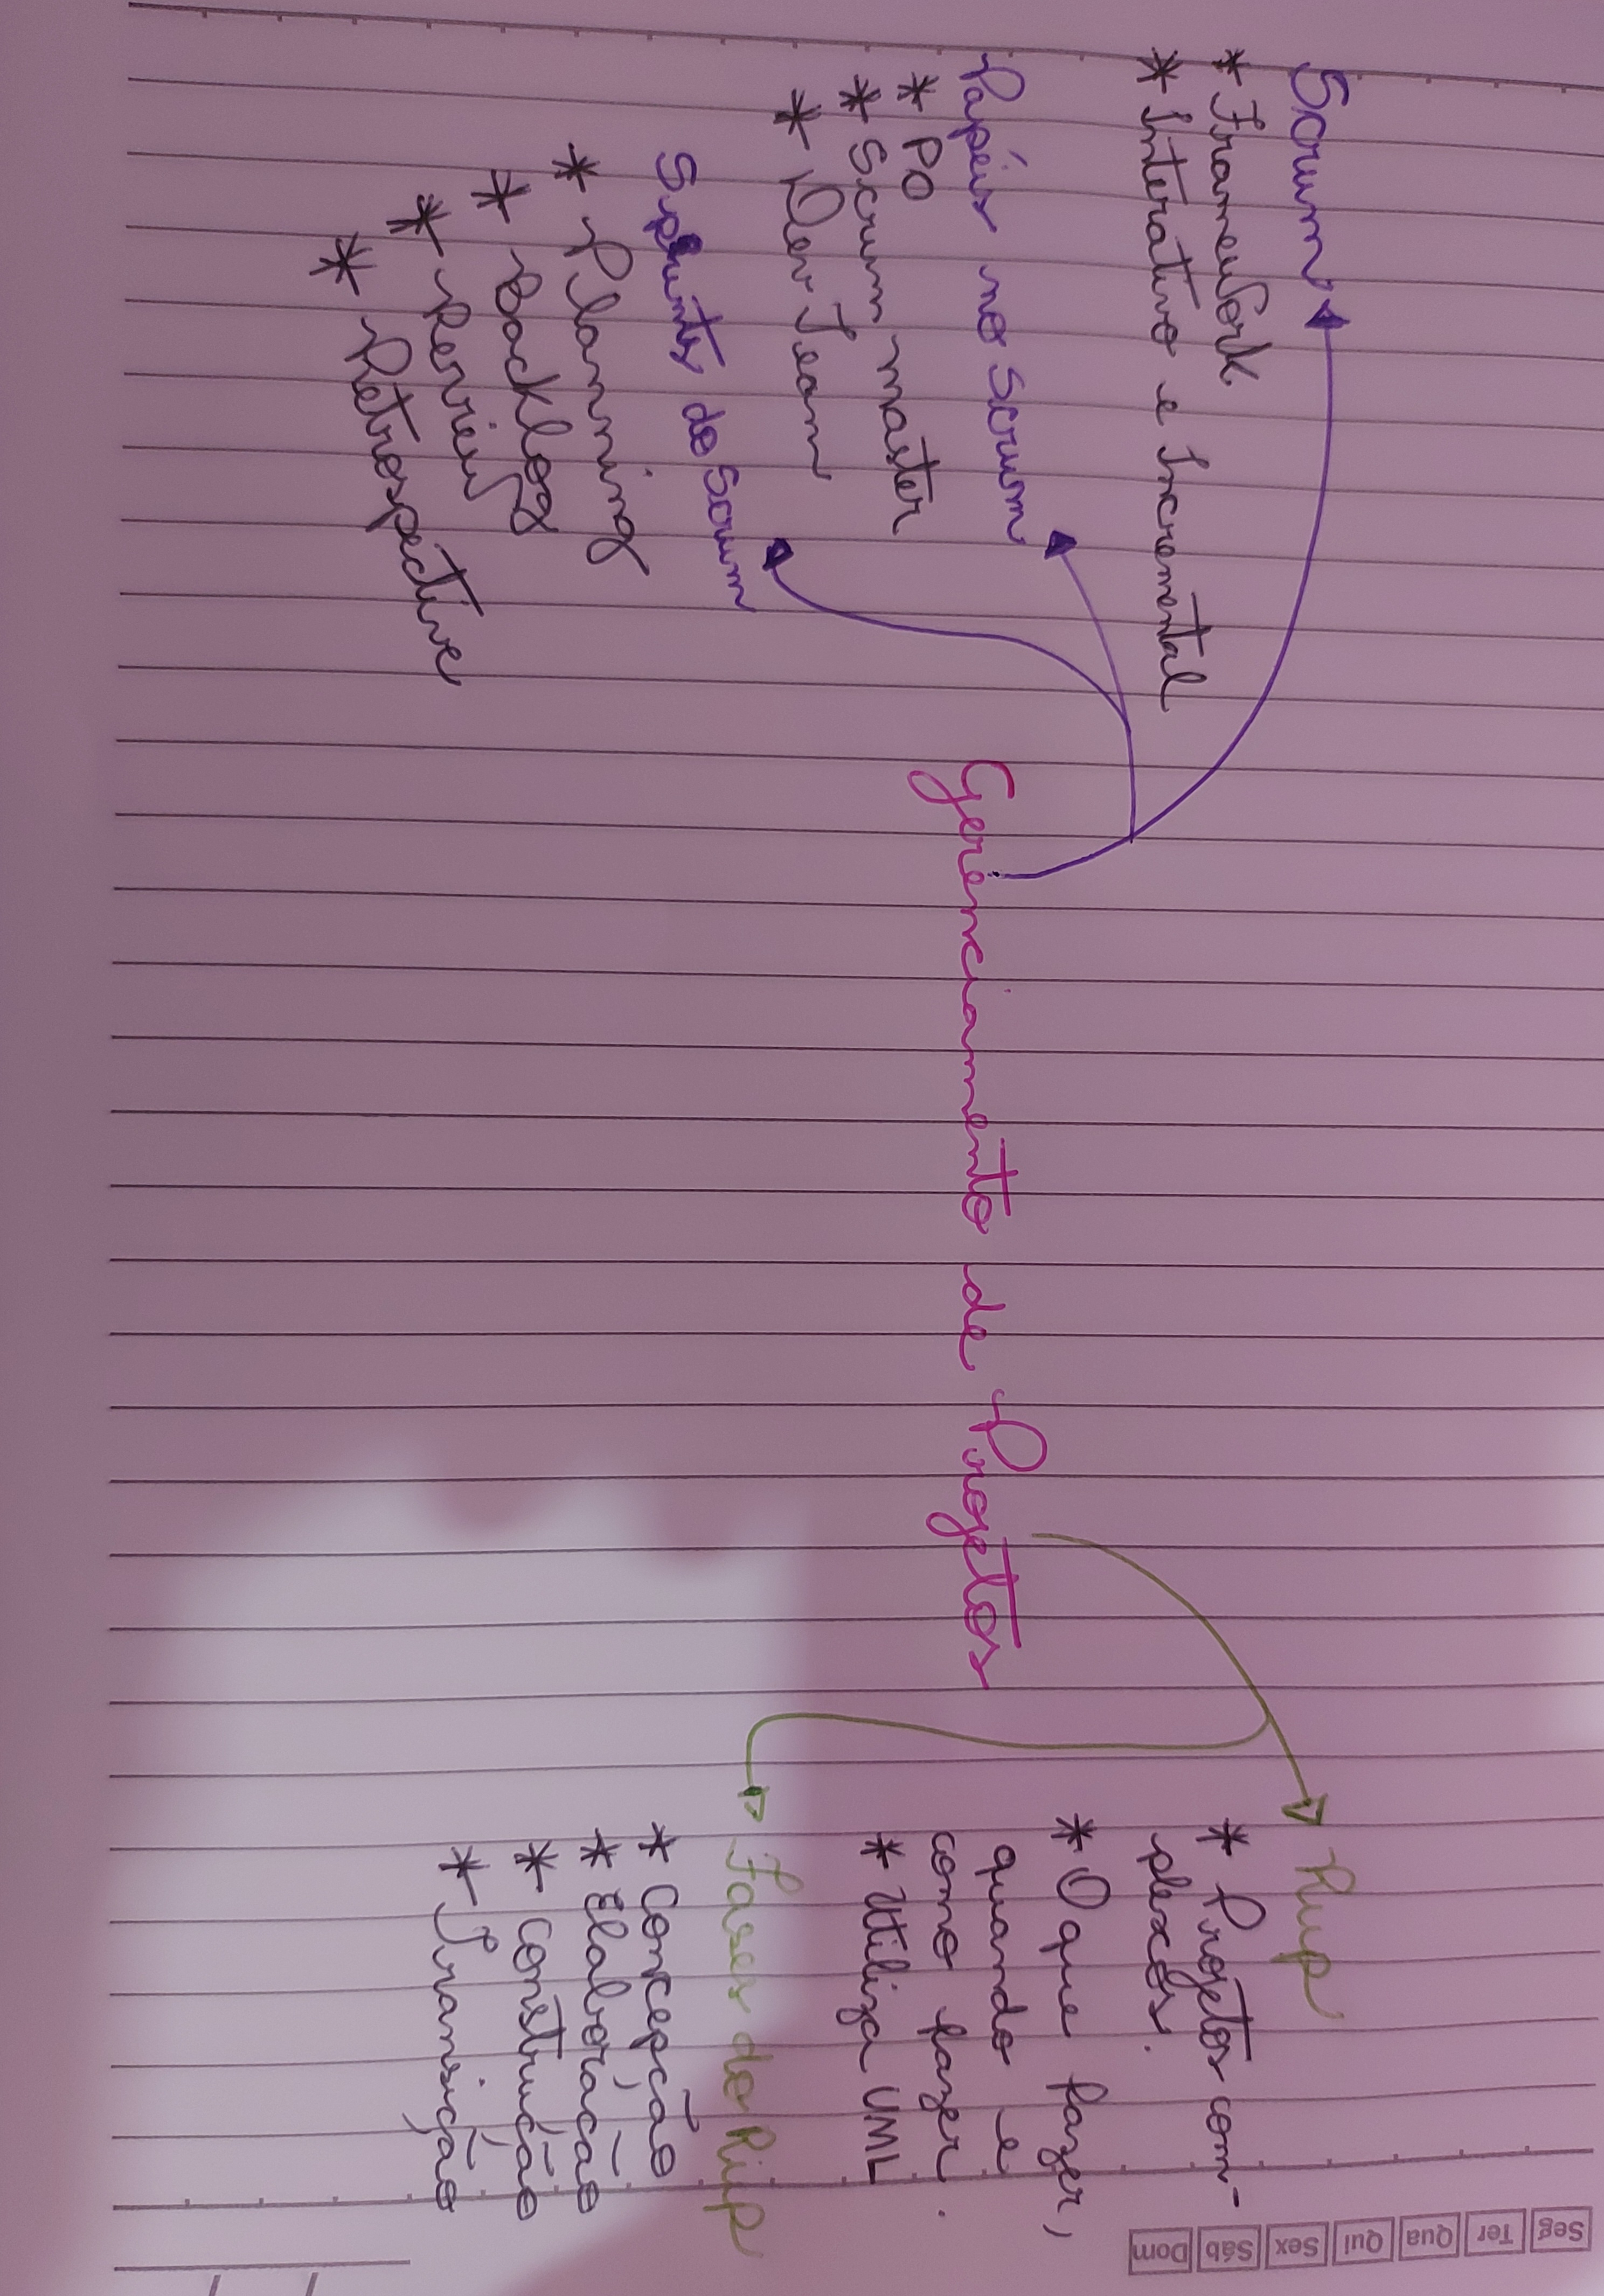 Scrum
* Framework
* Interativo e Incremental
Papéis no Scrum
* PO
* Scrum master
* Dev Team
Sprints do Scrum
* Planning
* Backlog
* Review
* Retrospective
Gerenciamento de Projetos
Rup
* Projetos com-
plexos.
* O que fazer,
quando e
como fazer.
* Utiliza UML
Fases do Rup
* Concepção
* Elaboração
* Construção
* Transição
Seg Ter Qua Qui Sex Sáb Dom